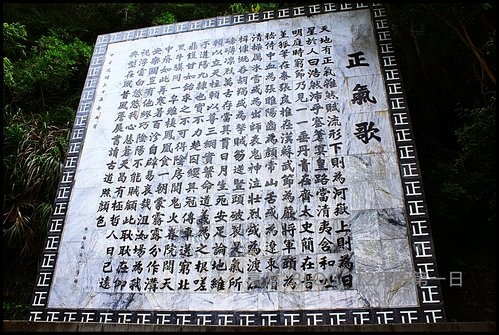 正氣歌
天地有正氣雜然賦流形下則為河嶽上則為日
星於人曰浩然沛乎塞蒼冥皇路當清夷含和吐
明庭時窮節乃見一一垂丹青在齊太史簡在晉
董狐筆在秦張良椎在漢蘇武節為嚴將軍頭為
嵇侍中血為張睢陽齒為顏常山舌或為遼東帽
清操厲冰雪或為出師表鬼神泣壯烈或為渡江
楫慷慨吞胡羯或為擊賊笏逆豎頭破裂是氣所
磅礴凜烈萬古存當其貫日月生死安足論地維
賴以立天柱賴以尊三綱實繫命道義為之根嗟
予遘陽九隸也實不力楚囚纓其冠傳車送窮北
鼎鑊甘如飴求之不可得陰房闃鬼火春院閟天
黑牛驥同一皁雞棲鳳凰食一朝蒙霧露分作溝
中瘠如此再寒暑百沴自辟易哀哉沮洳場為我
安樂國豈有他繆巧陰陽不能賊顧此耿耿在仰
視浮雲白悠悠我心悲蒼天曷有極哲人日已遠
典型在夙昔風簷展書讀古道照顏色
一日